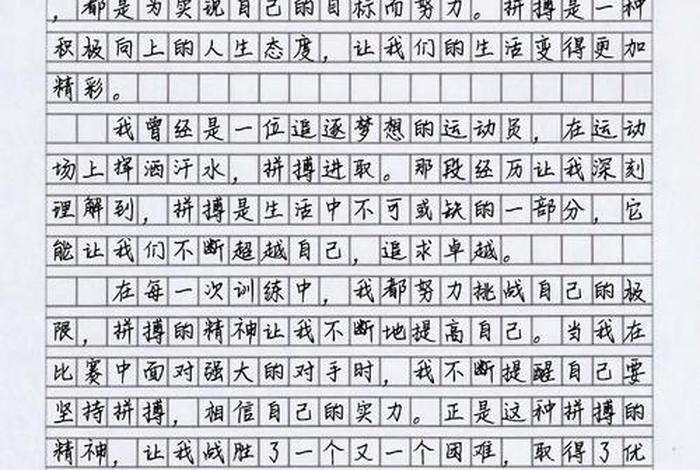 ，都是为实现自己的目标而努力。拼搏是一种
积极向上的人生态度，让我们的生活变得更加
精彩。
我曾经是一位追逐梦想的运动员，在运动
场上挥洒汗水，拼搏进取。那段经历让我深刻
理解到，拼搏是生活中不可或缺的一部分，它
能让我们不断超越自己，追求卓越。
在每一次训练中，我都努力挑战自己的极
限，拼搏的精神让我不断地提高自己。当我在
比赛中面对强大的对手时，我不断提醒自己要
坚持拼搏，相信自己的实力。正是这种拼搏的
精神，让我战胜了一个又一个困难，取得了优